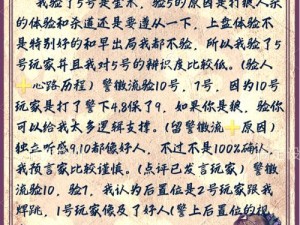 我验了5号是金水，验5的原因是打狼人杀
的体验和杀道还是要遵从一下，上盘体验不
是特别好的和早出局我都不验，所以我验了5
号玩家并且我对5号的辩识度比较低。(验人
心路历程）警徽流验10号，7号，因为10号
玩家是打了警下4.8保了9.如果你是狼，验你
可以给我太多逻辑支撑。(留警徽流 原因）
独立听感9.10都像好人，不过不是100%确认，
我预言家比较谨慎。(点评已发言玩家）警徽
流验10，验7，我认为后置位是2号玩家跟我
焊跳，1号玩家像及了好人(警上后置位的视